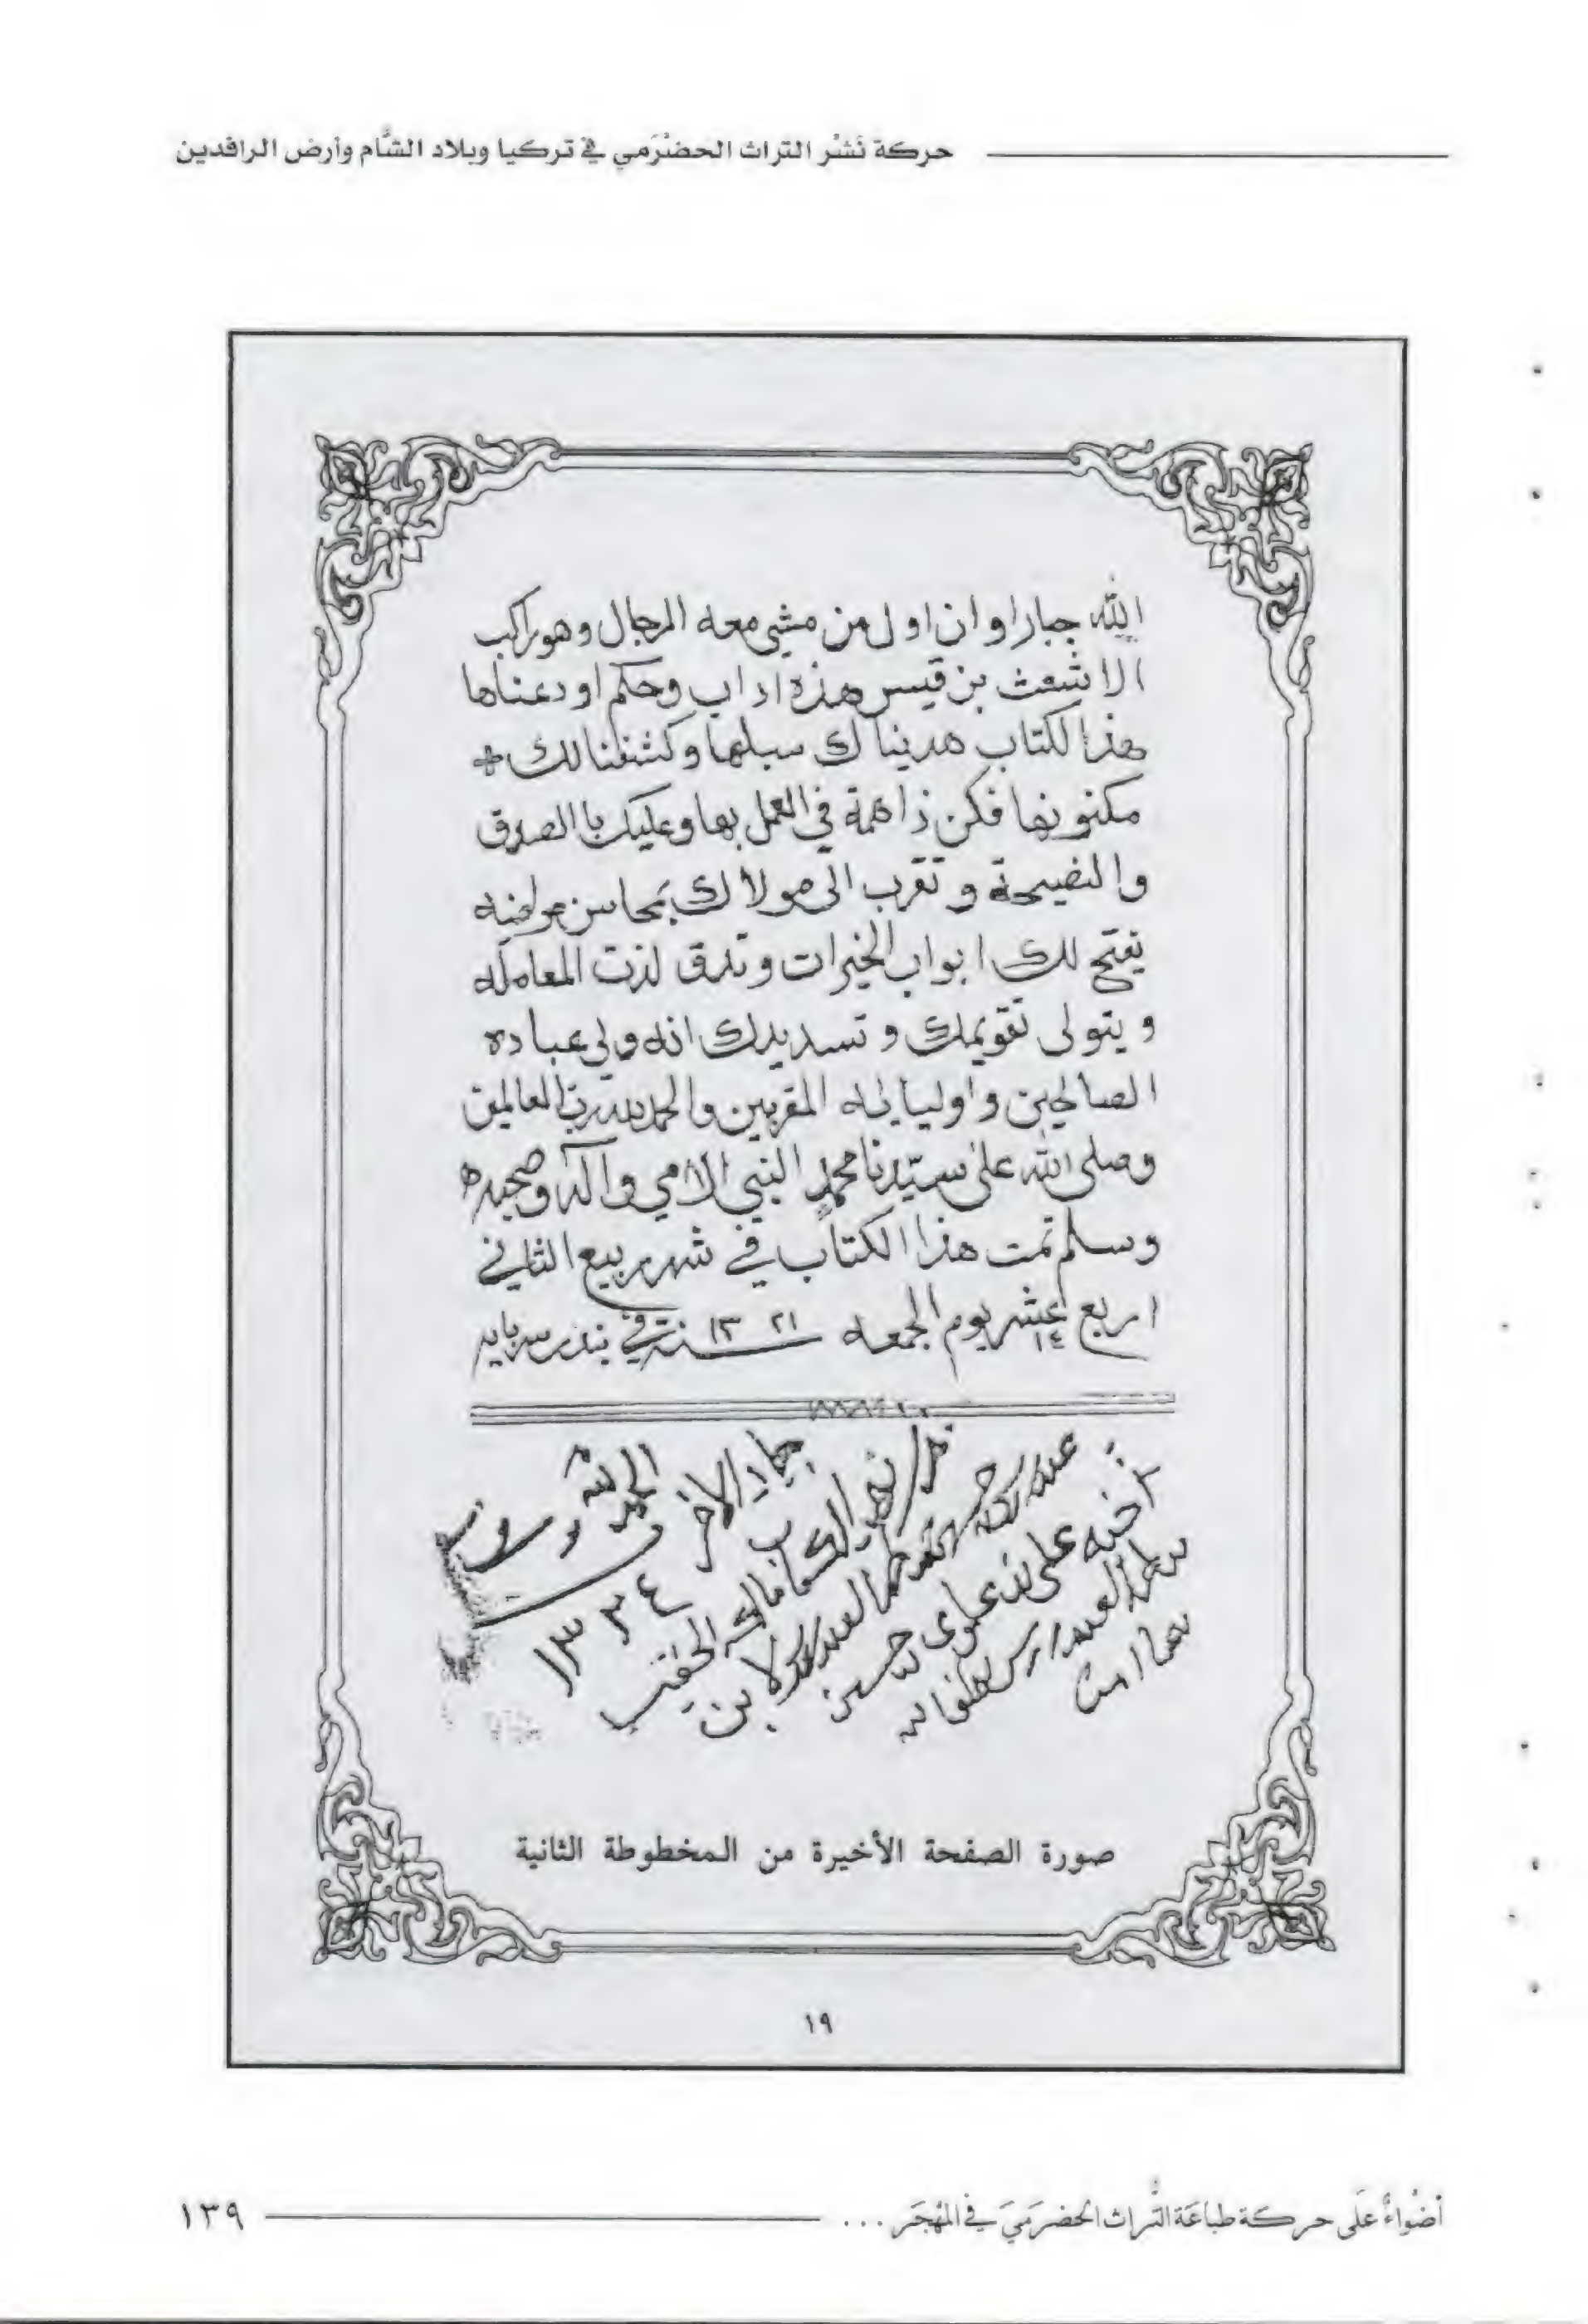 حركة نَشْر التراث الحضْرَمي في تركيا وبلاد الشَّام وأرض الرافدين
الله جبارا وان اول من مشي معه الرجال وهو راكب
الاشعث بن قيس هذه اداب وحكم اودعناها
هذا لكتاب هديناك سبلها وكشفنا لك
مكنونها فكن ذا همة في العمل بها وعليك باالصدق
والنصيحة وتقرب الى مولاك بمحاسن
يفتح لك ابواب الخيرات وتذق لذت المعامله
ويتولى تقويمك وتسديدك انه ولي عباده
الصالحين واوليايه المقربين والحمد لله رب العالمين
وصلى الله على سيدنا محمد النبي الامي وآله وصحبه
وسلم تمت هذا الكتاب في شهر ربيع الثاني
اربع عشر ١٤ يوم الجمعه سنة ١٣٢١ في بندر سربايه
الحمد لله
جماد الاخر
١٣٣٤
الكتاب مالكه الحقير
بن
اخيه علي بن علوي حسين
العيدروس
امين
صورة الصفحة الأخيرة من المخطوطة الثانية
١٩
أضْواءٌ عَلَى حركة طباعَة التُّراث الحَضرَميّ في المَهْجَر ...
١٣٩